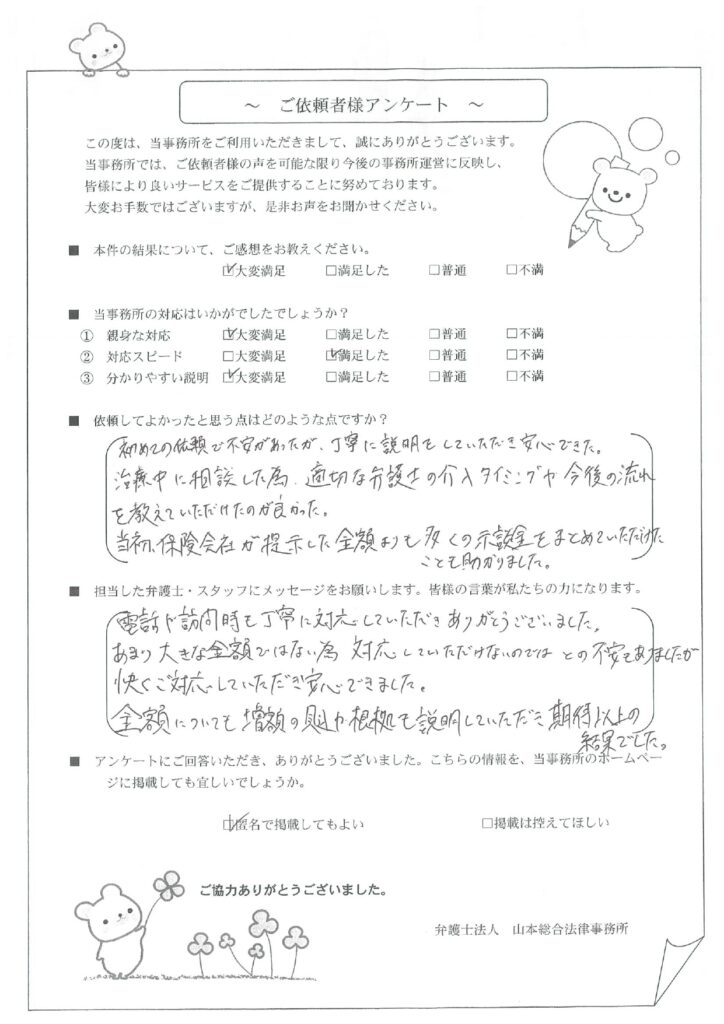 ～ ご依頼者様アンケート ～
この度は、当事務所をご利用いただきまして、誠にありがとうございます。
当事務所では、ご依頼者様の声を可能な限り今後の事務所運営に反映し、
皆様により良いサービスをご提供することに努めております。
大変お手数ではございますが、是非お声をお聞かせください。
■ 本件の結果について、ご感想をお教えください。
☑大変満足 □満足した □普通 □不満
■ 当事務所の対応はいかがでしたでしょうか？
① 親身な対応 ☑大変満足 □満足した □普通 □不満
② 対応スピード □大変満足 ☑満足した □普通 □不満
③ 分かりやすい説明 ☑大変満足 □満足した □普通 □不満
■ 依頼してよかったと思う点はどのような点ですか？
初めての依頼で不安があったが、丁寧に説明をしていただき安心できた。
治療中に相談した為、適切な弁護士の介入タイミングや今後の流れ
を教えていただけたのが良かった。
当初、保険会社が提示した金額よりも多くの示談金をまとめていただけた
ことも助かりました。
■ 担当した弁護士・スタッフにメッセージをお願いします。皆様の言葉が私たちの力になります。
電話や訪問時も丁寧に対応していただきありがとうございました。
あまり大きな金額ではない為 対応していただけないのでは との不安もありましたが
快くご対応していただき安心できました。
金額についても増額の や根拠も説明していただき期待以上の
結果でした。
■ アンケートにご回答いただき、ありがとうございました。こちらの情報を、当事務所のホームペー
ジに掲載しても宜しいでしょうか。
☑匿名で掲載してもよい □掲載は控えてほしい
ご協力ありがとうございました。
弁護士法人 山本総合法律事務所